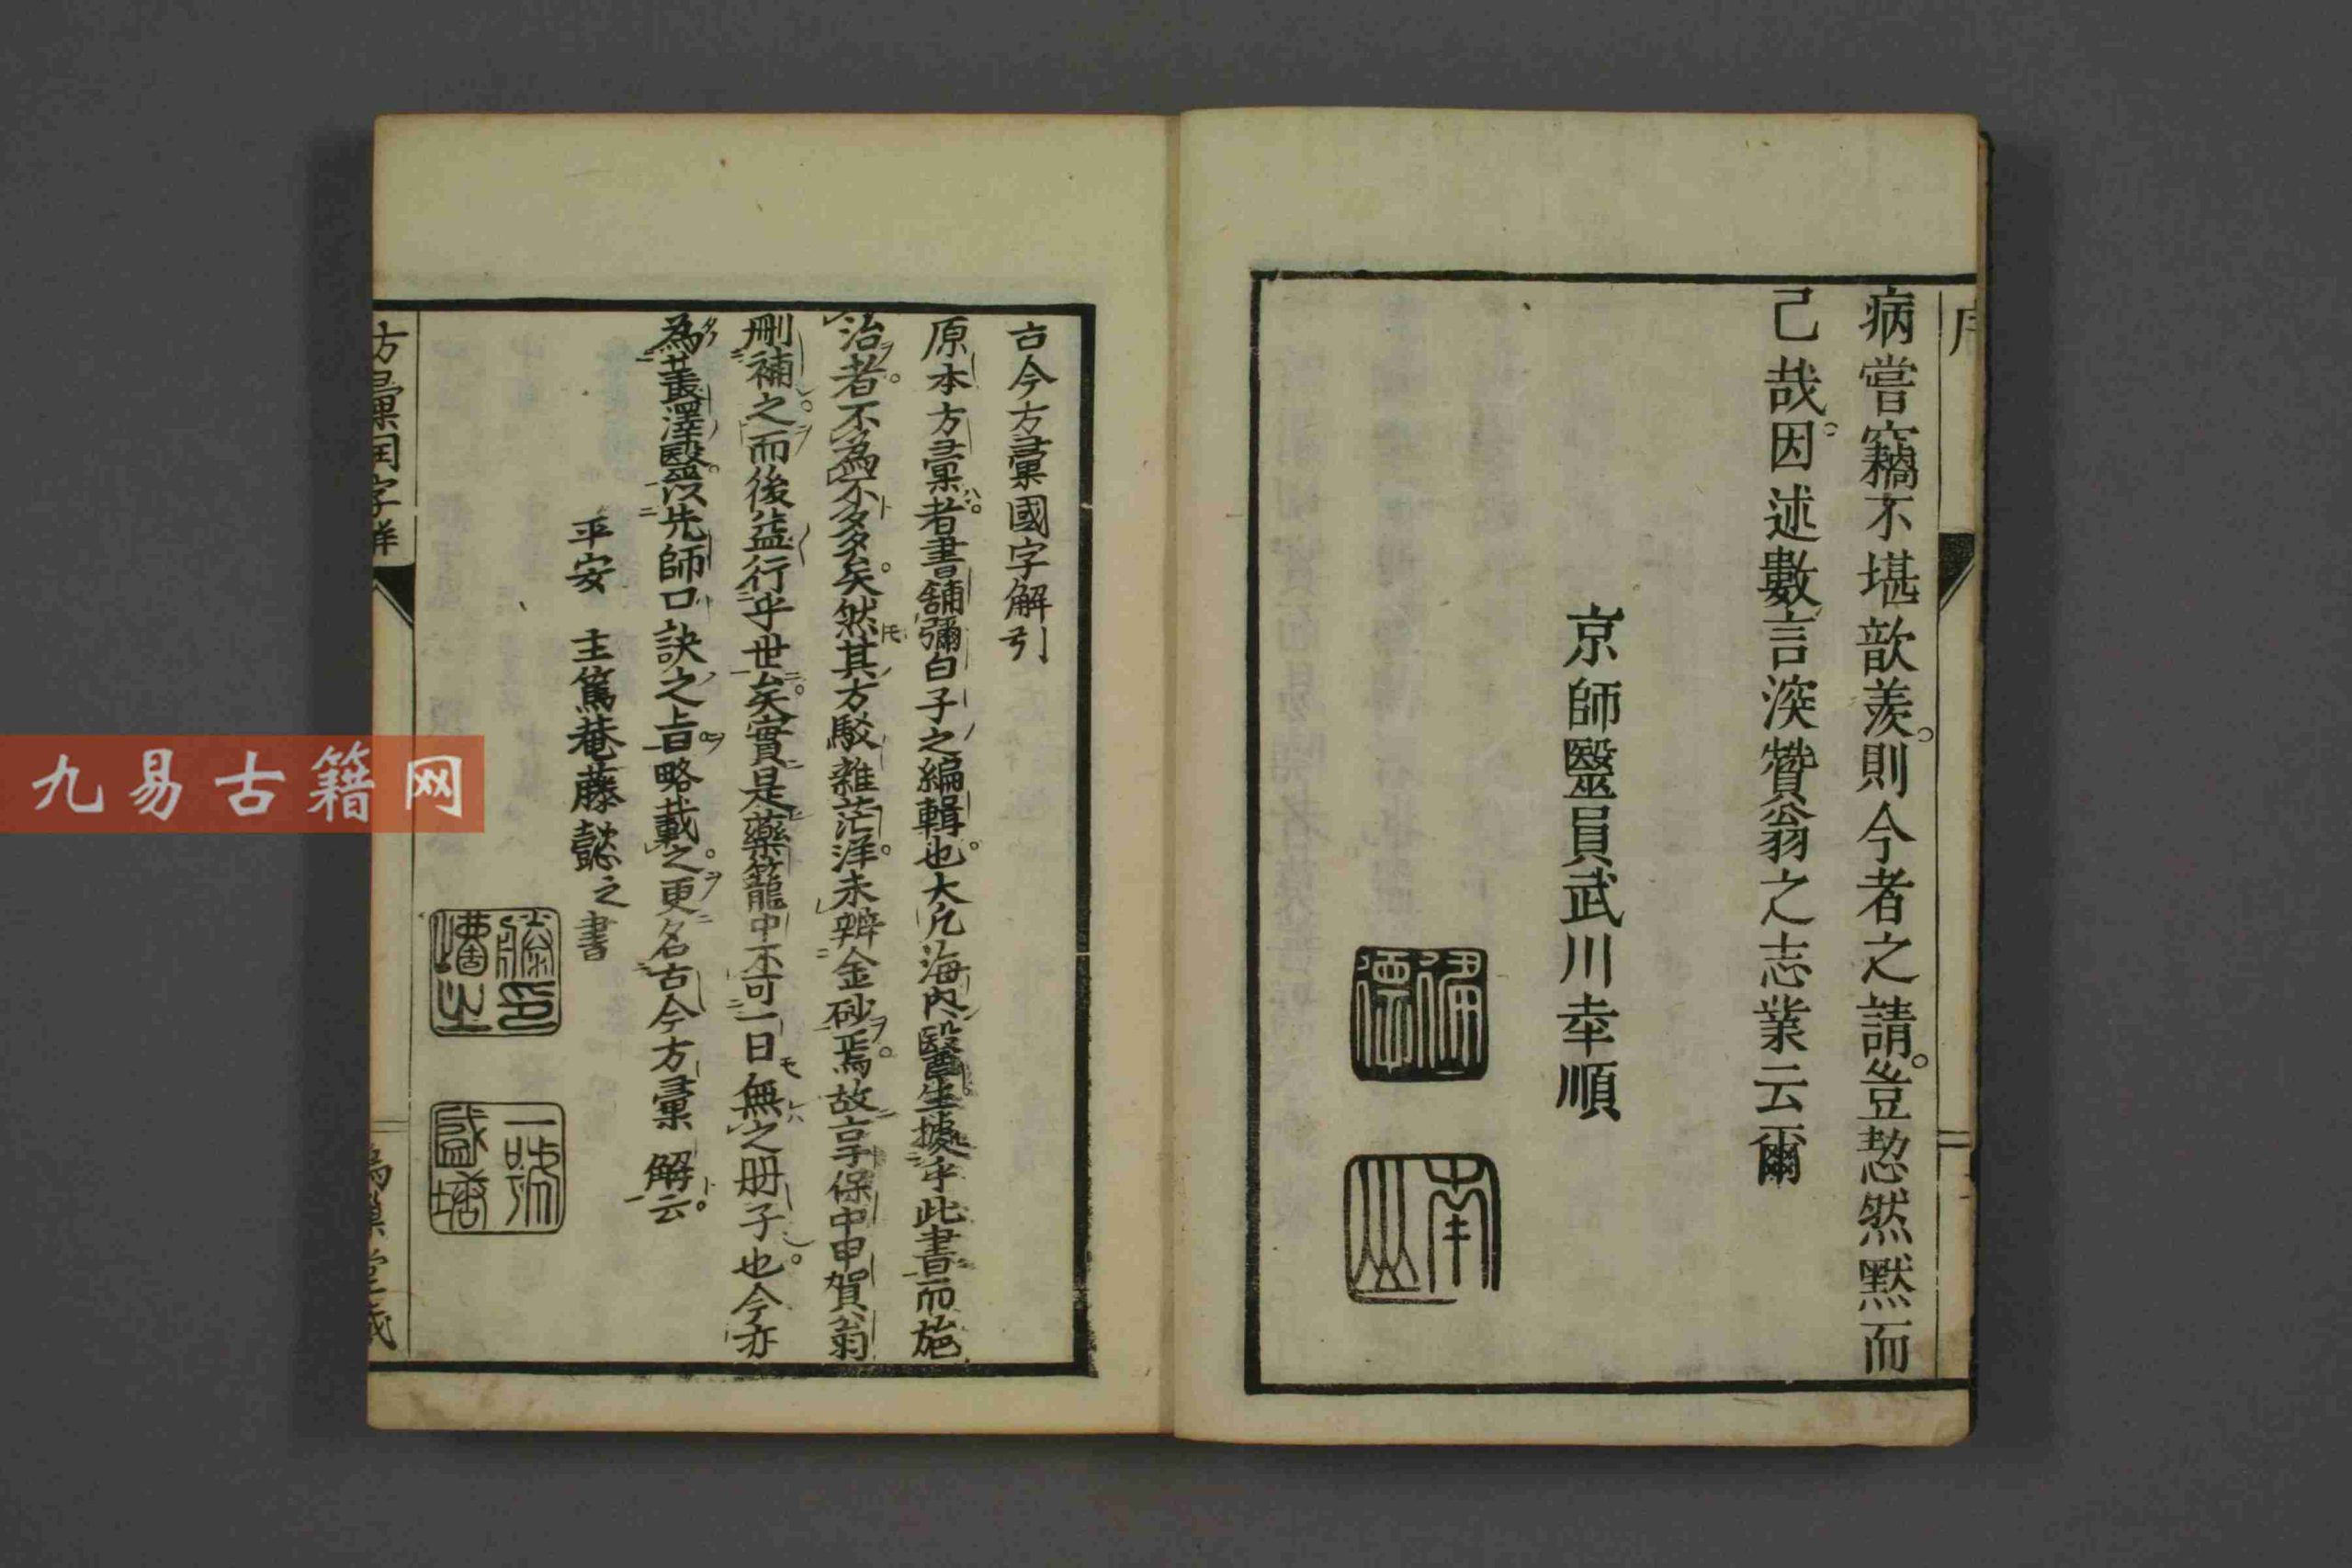 序
病嘗竊不堪歆羨則今者之請豈恝然黙而
己哉因述數言深贊翁之志業云爾
京師毉員武川幸順
南山
古今方彙國字解引
原本方彙者書舖彌白子之編輯也大凡海内醫生據乎此書而施
治者不為不多矣然其方駁雜茫洋未辨金砂焉故享保中甲賀翁
刪補之而後益行乎世矣實是藥籠中不可一日無之册子也今亦
為叢澤毉以先師口訣之旨略載之更名古今方彙 解云
平安 主篤菴藤懿之書
方彙国字解
九易古籍网